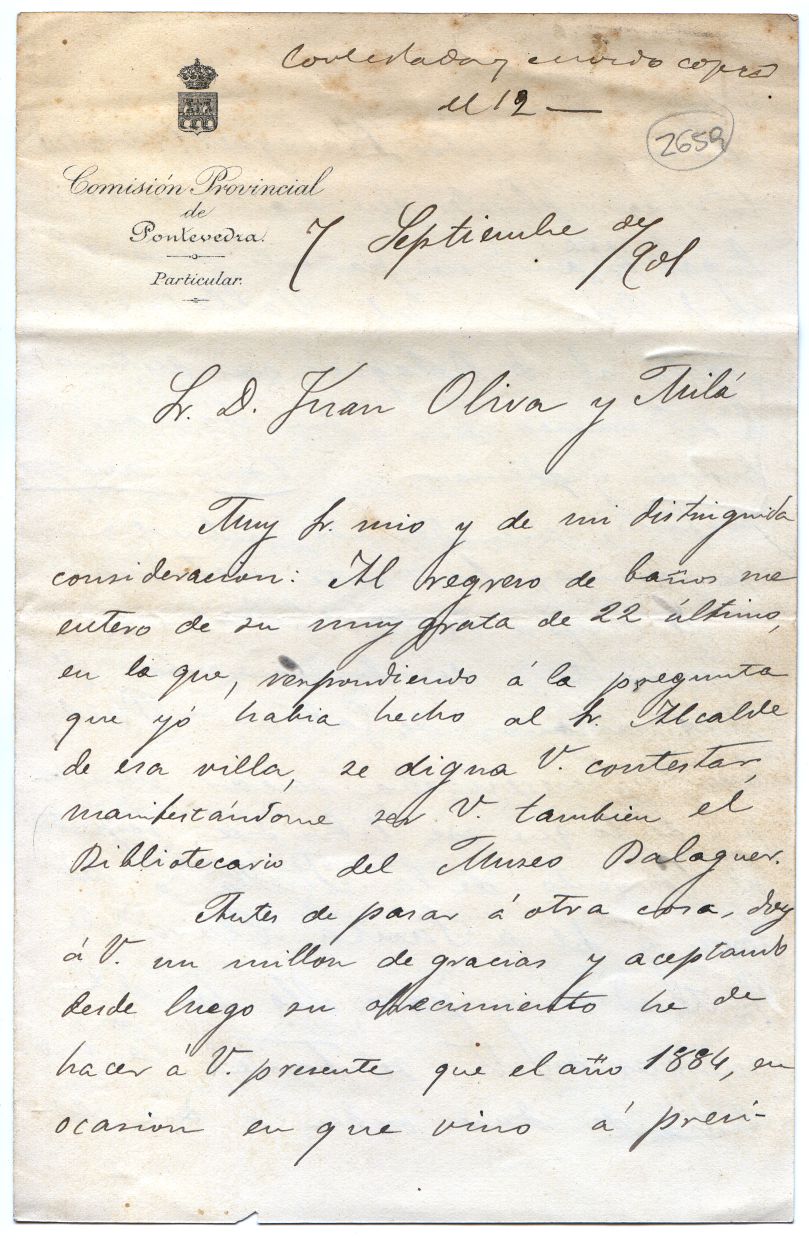 Contestada y enviado copia
el 12 —
2659
Comisión Provincial
de
Pontevedra.
Particular.
7 Septiembre de/901
Sr. D. Juan Oliva y Milá
Muy Sr. mio y de mi distinguida
consideracion: Al regreso de baños me
entero de su muy grata de 22 último,
en la que, respondiendo á la pregunta
que yó habia hecho al Sr. Alcalde
de esa villa, se digna V. contestar,
manifestándome ser V. tambien el
Bibliotecario del Museo Balaguer.
Antes de pasar á otra cosa, doy
á V. un millon de gracias y aceptando
desde luego su ofrecimiento he de
hacer á V. presente que el año 1884, en
ocasion en que vino á presi-